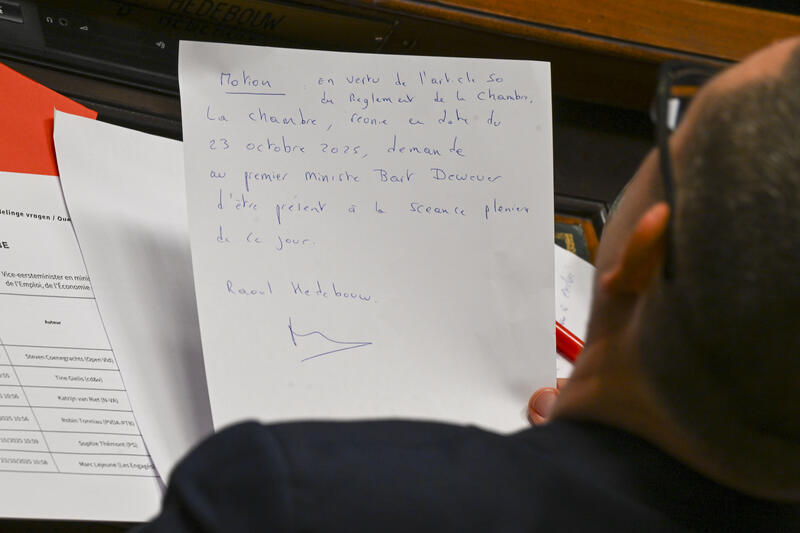 HEDEBOUW
Motion : en vertu de l'article 50
du Règlement de la Chambre.
La chambre, réunie en date du
23 octobre 2025, demande
au premier ministre Bart Dewever
d'être présent à la sceance plénière
de ce jour.
Raoul Hedebouw.
delinge vragen / Que
Vice-eersteminister en mini
de l'Emploi, de l'Économie
Auteur
Steven Coenegrachts (Open Vld)
Tine Gielis (cd&v)
10:56
Katrijn van Riet (N-VA)
2025 10:56
Robin Tonniau (PVDA-PTB)
10/2025 10:59
Sophie Thémont (PS)
23/10/2025 10:58
Marc Lejeune (Les Engagé